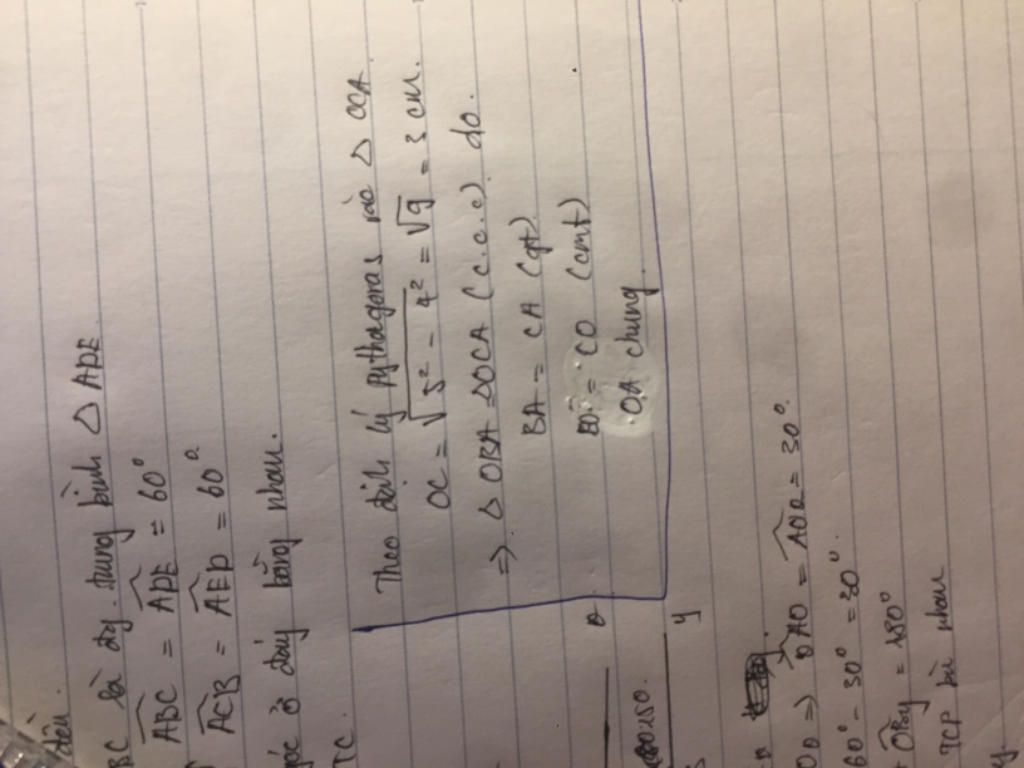 đều.
BC là đg. trung bình △ ADE
ABC = ADE = 60°
ACB = AED = 60°
góc ở đáy bằng nhau.
TC.
Theo định lý Pythagoras vào △ OCA.
OC = √5² - 4² = √9 = 3 cm.
=> △ OBA = △OCA (c.c.c) do.
BA = CA (gt)
BO = CO (cmt)
OA chung
y
AO = AOD = 30°
60° - 30° = 30°.
= 180°
TCP bù nhau